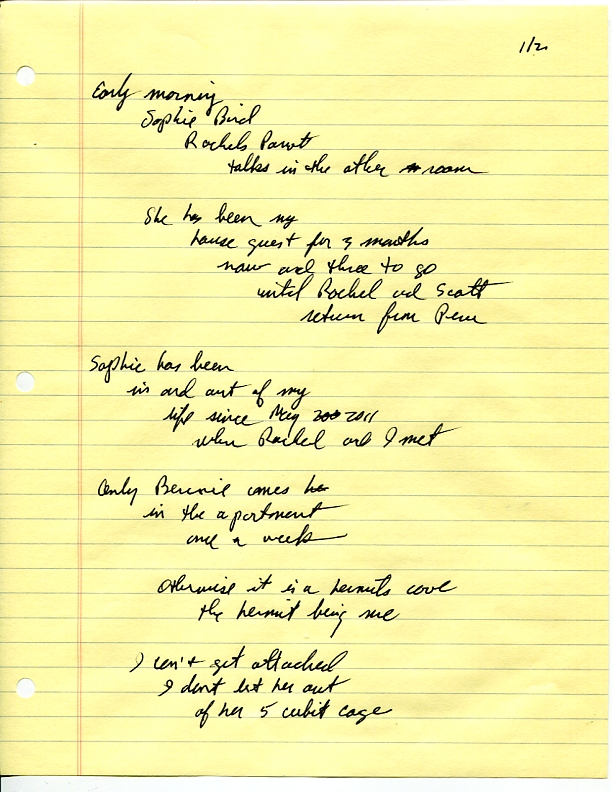 1/2
Early morning
Sophie Bird
Rachels Parrot
talks in the other room
She has been my
house guest for 3 months
now and three to go
until Rachel and Scott
return from Peru
Sophie has been
in and out of my
life since May 2011
when Rachel and I met
Only Bennie comes
in the apartment
once a week
otherwise it is a hermits cave
the hermit being me
I can't get attached
I don't let her out
of her 5 cubit cage